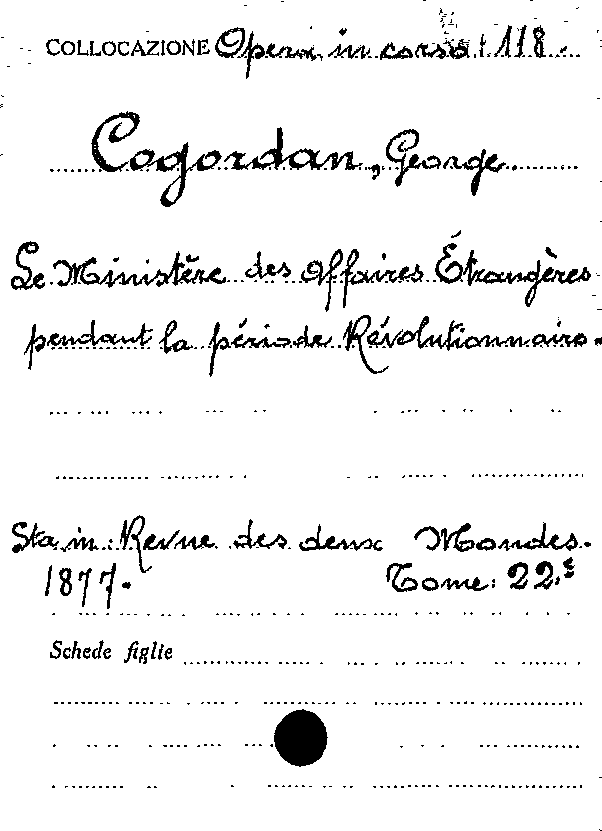 COLLOCAZIONE Opera in corso: 118.
Cogordan, George.
Le Ministère des Affaires Étrangères
pendant la période Révolutionnaire.
Sta in: Revue des deux Mondes.
1877. Tome: 22.e
Schede figlie